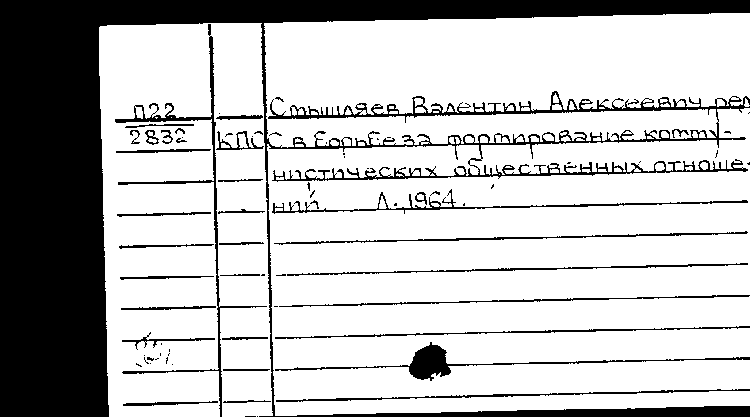 П22 Смышляев, Валентин Алексеевич, ред
2832 КПСС в борьбе за формирование комму-
нистических общественных отноше-
ний. Л., 1964.